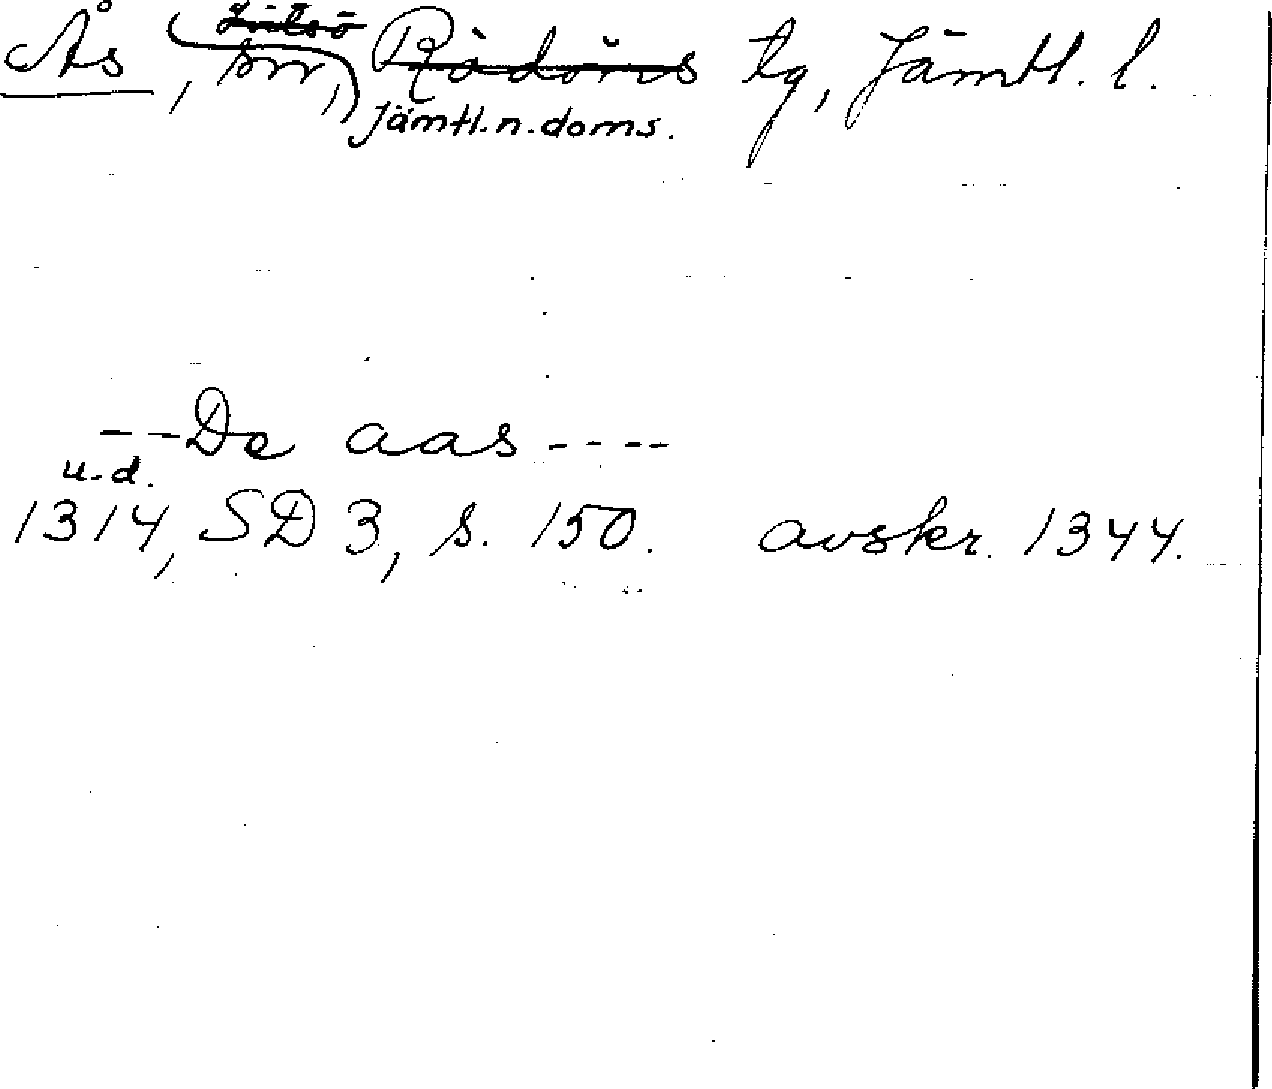 Ås, sn, Rödöns tg, Jämtl. l.
Jämtl. n. doms.
--De aas----
u.d.
1314, SD 3, s. 150. avskr. 1344.